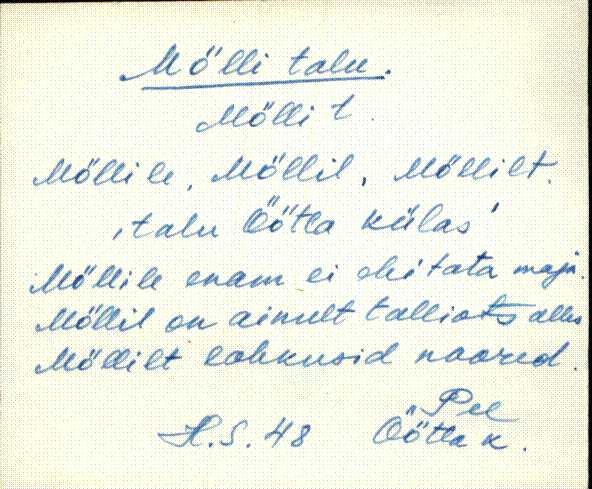 Mölli talu.
Mölli t.
Möllile, Möllil, Möllilt.
'talu Öötla külas'
Möllile enam ei ehitata maja.
Möllil on ainult talliots alles
Möllilt lahkusid noored.
Pee
H.S. 48 Öötla k.